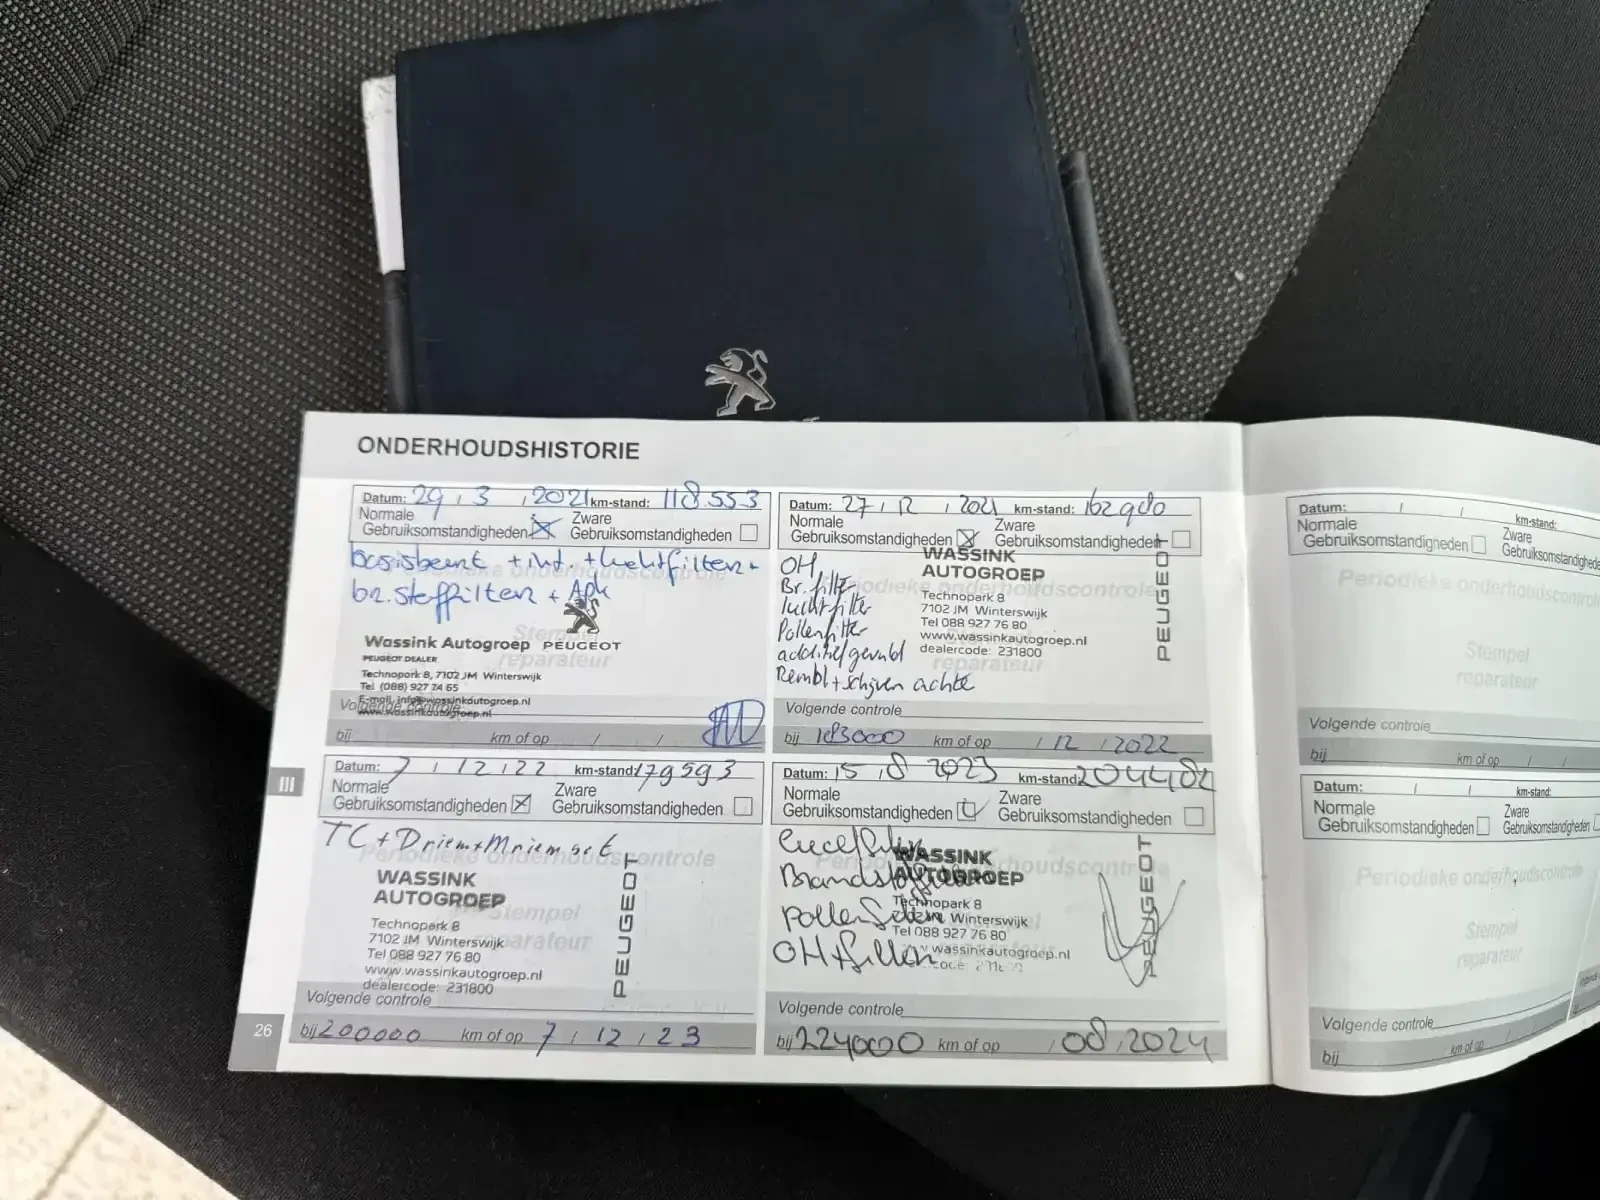 ONDERHOUDSHISTORIE
Datum: 29 / 3 / 2021 km-stand: 118.553
Normale Gebruiksomstandigheden
Zware Gebruiksomstandigheden
basisbeurt + int. + luchtfilter +
br.stoffilter + Apk
Periodieke onderhoudscontrole
Stempel
reparateur
Wassink Autogroep PEUGEOT
PEUGEOT DEALER
Technopark 8, 7102 JM Winterswijk
Tel (088) 927 74 65
E-mail. info@wassinkautogroep.nl
www.wassinkautogroep.nl
Volgende controle
bij km of op / /
Datum: 27 / 12 / 2021 km-stand:
Normale Gebruiksomstandigheden
Zware Gebruiksomstandigheden
OH
Br. filter
luchtfilter
Pollenfilter
additief gevuld
Rembl + schijven achter
Periodieke onderhoudscontrole
Stempel
reparateur
WASSINK
AUTOGROEP
Technopark 8
7102 JM Winterswijk
Tel 088 927 76 80
www.wassinkautogroep.nl
dealercode: 231800
PEUGEOT
Volgende controle
bij 183000 km of op / 12 / 2022
Datum: 7 / 12 / 22 km-stand: 179593
Normale Gebruiksomstandigheden
Zware Gebruiksomstandigheden
TC + Driem + Mriem set
Periodieke onderhoudscontrole
Stempel
reparateur
WASSINK
AUTOGROEP
Technopark 8
7102 JM Winterswijk
Tel 088 927 76 80
www.wassinkautogroep.nl
dealercode: 231800
PEUGEOT
Volgende controle
bij 200000 km of op 7 / 12 / 23
Datum: 15 / 8 2023 km-stand:
Normale Gebruiksomstandigheden
Zware Gebruiksomstandigheden
Periodieke onderhoudscontrole
WASSINK
AUTOGROEP
Technopark 8
Winterswijk
Tel 088 927 76 80
wassinkautogroep.nl
PEUGEOT
Volgende controle
bij 224000 km of op / 08 / 2024
III
26
Datum: / / km-stand:
Normale Gebruiksomstandigheden
Zware Gebruiksomstandigheden
Periodieke onderhoudscontrole
Stempel
reparateur
Volgende controle
bij km of op / /
Datum: / / km-stand:
Normale Gebruiksomstandigheden
Zware Gebruiksomstandigheden
Periodieke onderhoudscontrole
Stempel
reparateur
Volgende controle
bij km of op / /